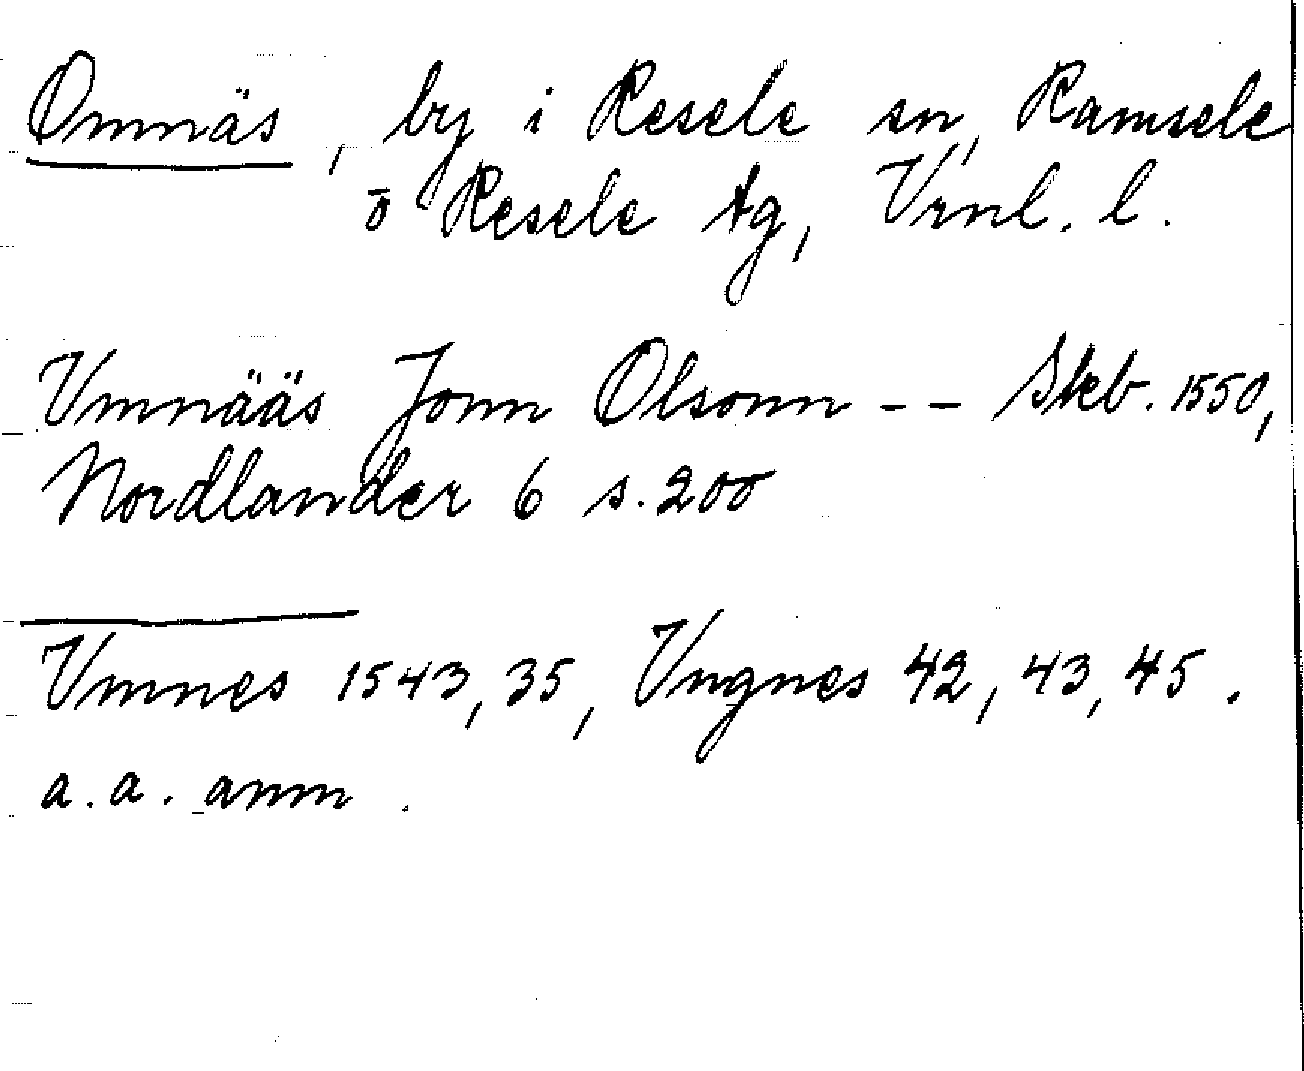 Omnäs, by i Resele sn, Ramsele
o Resele tg, Vrnl. l.
Vmnääs Jonn Olsonn -- Skb. 1550,
Nordlander 6 s. 200
Vmnes 1543, 35, Vngnes 42, 43, 45.
a. a. anm.